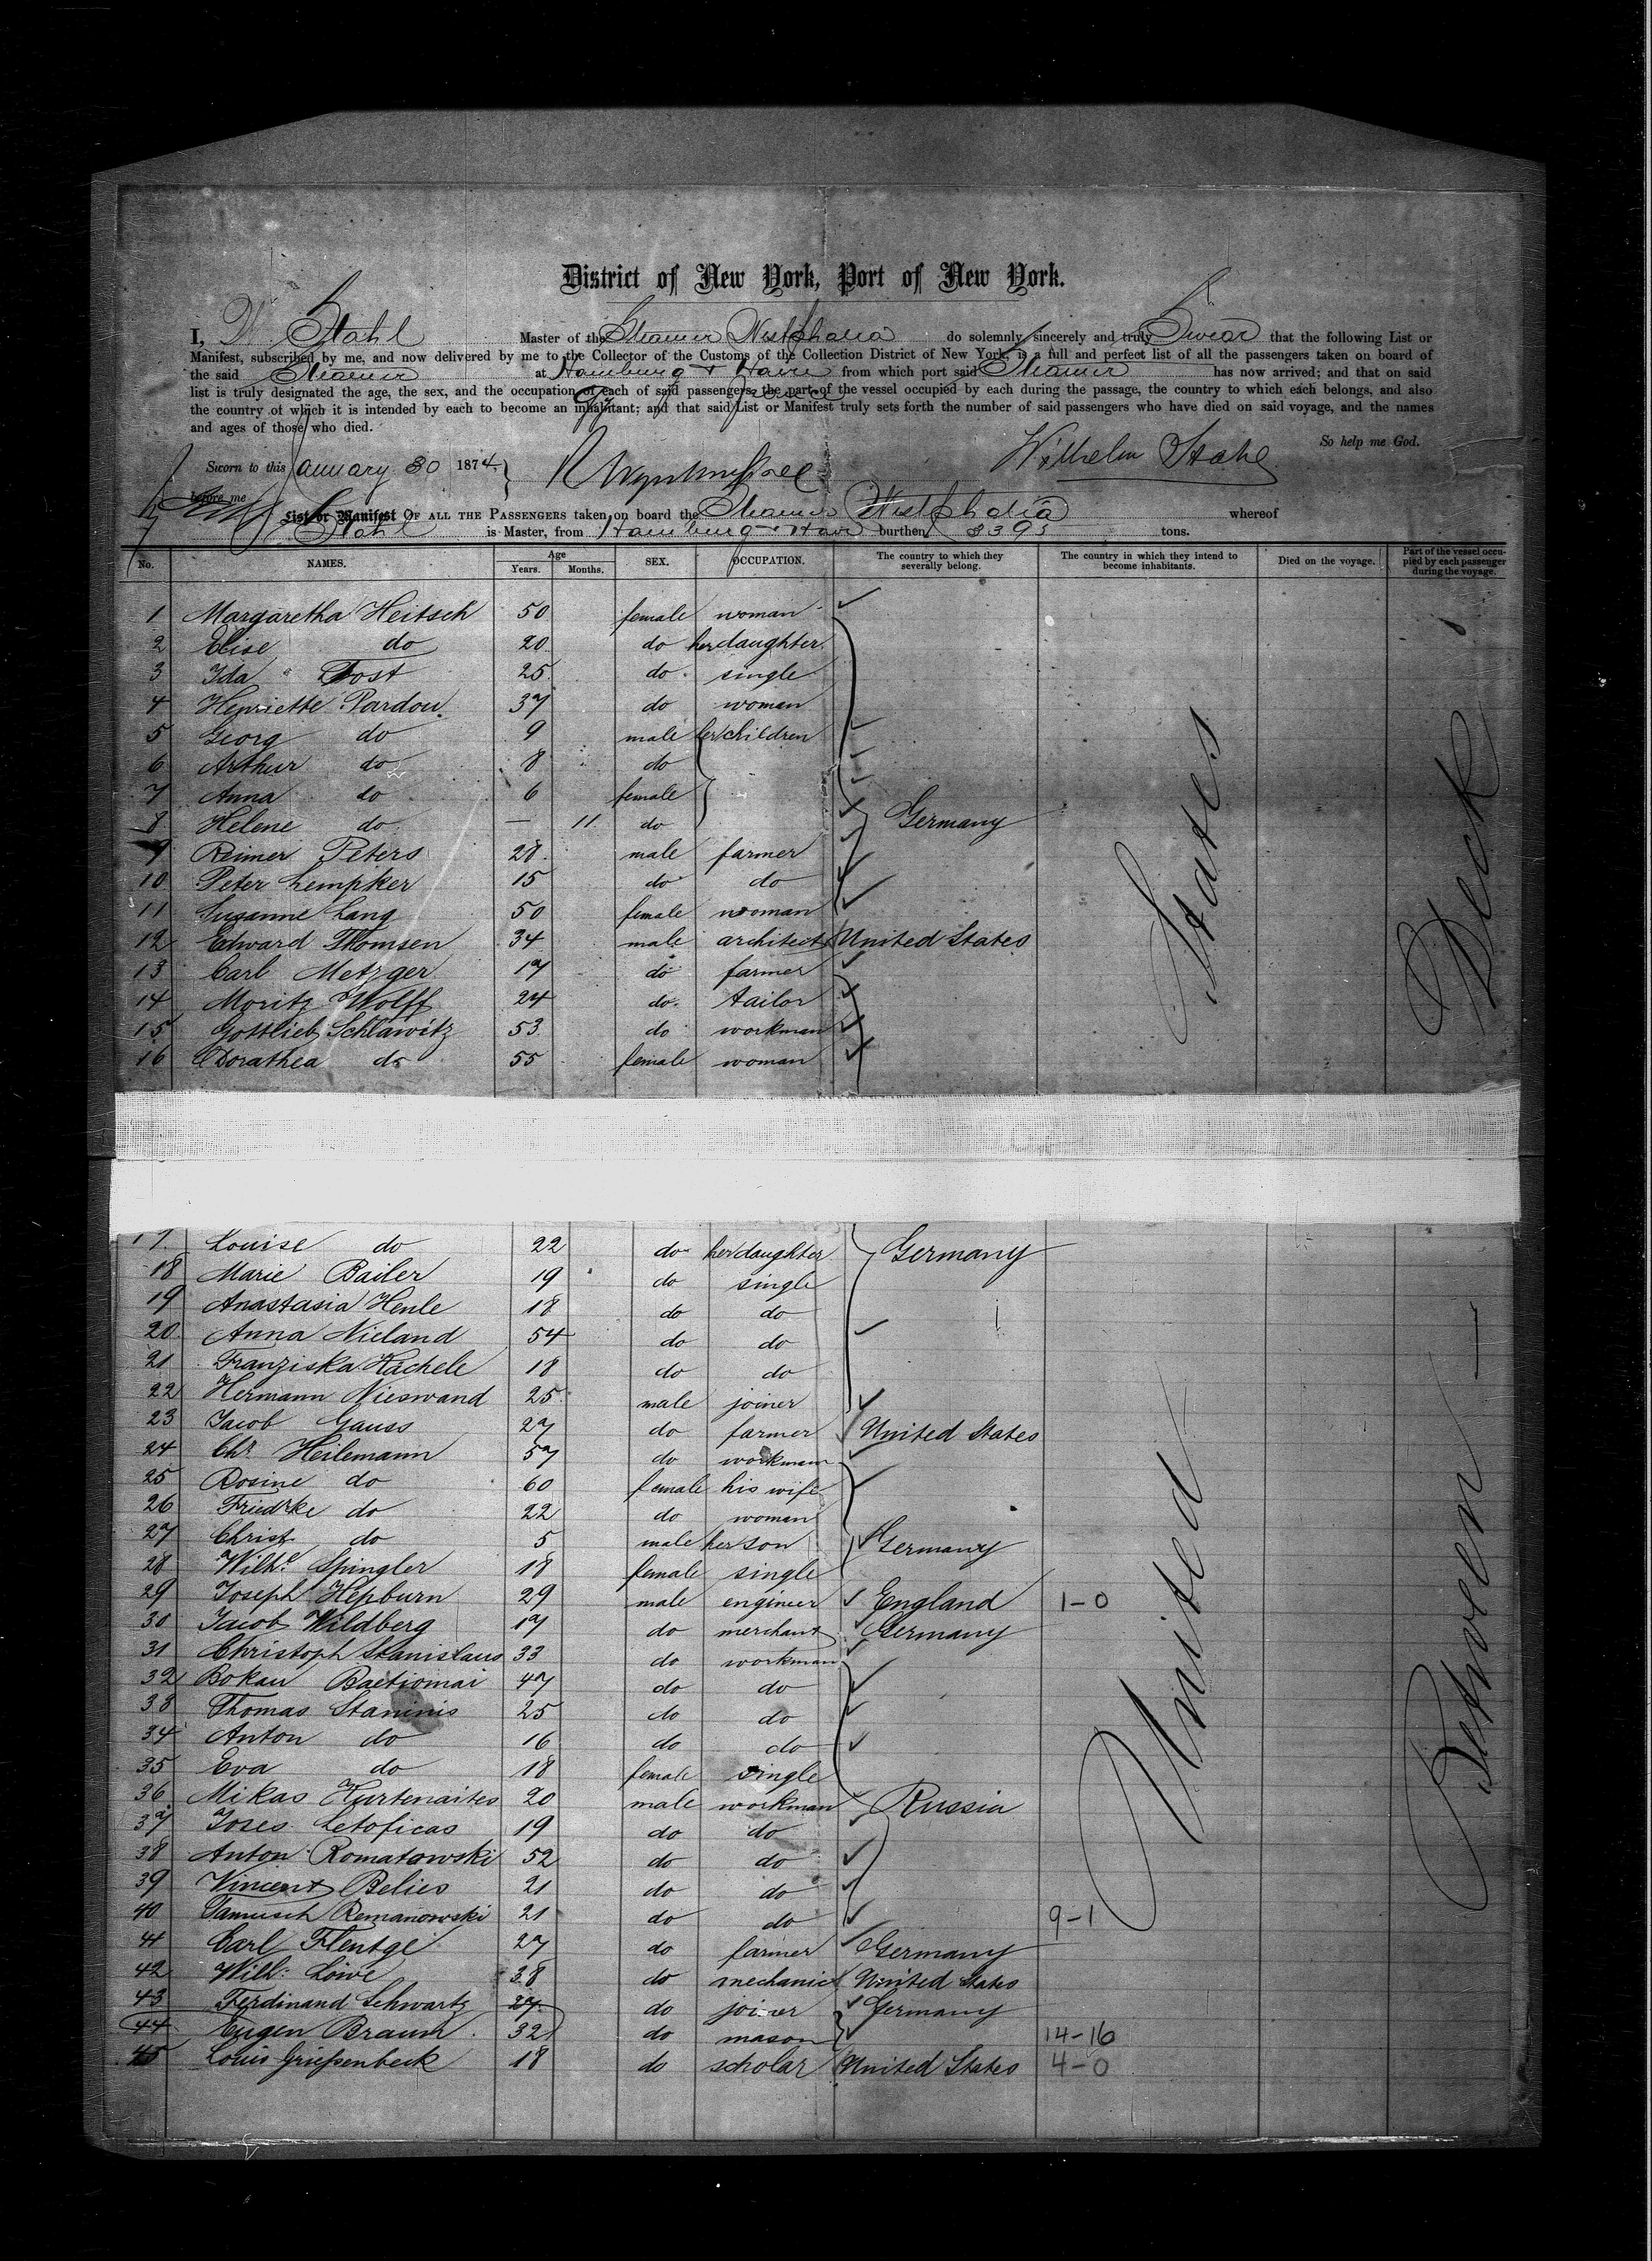 District of New York, Port of New York.
I, W Stahl Master of the Steamer Westphalia do solemnly, sincerely and truly Swear that the following List or
Manifest, subscribed by me, and now delivered by me to the Collector of the Customs of the Collection District of New York, is a full and perfect list of all the passengers taken on board of
the said Steamer at Hamburg + Havre from which port said Steamer has now arrived; and that on said
list is truly designated the age, the sex, and the occupation of each of said passengers, the part of the vessel occupied by each during the passage, the country to which each belongs, and also
the country of which it is intended by each to become an inhabitant; and that said List or Manifest truly sets forth the number of said passengers who have died on said voyage, and the names
and ages of those who died.
So help me God.
Sworn to this January 30 1874. Wilhelm Stahl
before me
List or Manifest OF ALL THE PASSENGERS taken on board the Steamer Westphalia whereof
Stahl is Master, from Hamburg + Havre burthen 3395 tons.
No. NAMES. Age Years. Months. SEX. OCCUPATION. The country to which they severally belong. The country in which they intend to become inhabitants. Died on the voyage. Part of the vessel occupied by each passenger during the voyage.
1 Margaretha Heitsch 50 female woman
2 Elise do 20 do her daughter
3 Ida Tost 25 do single
4 Henriette Pardou 37 do woman
5 Georg do 9 male her children
6 Arthur do 8 do
7 Anna do 6 female
8 Helene do — 11 do Germany
9 Reimer Peters 28 male farmer
10 Peter Lempker 15 do do
11 Susanne Lang 50 female woman
12 Edward Thomsen 34 male architect United States
13 Carl Metzger 17 do farmer
14 Moritz Wolff 24 do tailor
15 Gottlieb Schlawitz 53 do workman
16 Dorathea do 55 female woman
17 Louise do 22 do her daughter Germany
18 Marie Bailer 19 do single
19 Anastasia Henle 18 do do
20 Anna Nieland 54 do do
21 Franziska Hächele 18 do do
22 Hermann Nieswand 25 male joiner
23 Jacob Gauss 27 do farmer United States
24 Chr. Heilemann 57 do workman
25 Rosine do 60 female his wife
26 Friedrke do 22 do woman
27 Christ. do 5 male her son Germany
28 Wilhe. Spingler 18 female single
29 Joseph Hepburn 29 male engineer England 1-0
30 Jacob Wildberg 17 do merchant Germany
31 Christoph Stanislaus 33 do workman
32 Bokau Baetiomai 47 do do
33 Thomas Staninis 25 do do
34 Anton do 16 do do
35 Eva do 18 female single
36 Mikas Kurtenaites 20 male workman Russia
37 Joses Letoficas 19 do do
38 Anton Romatowski 52 do do
39 Vincent Belies 21 do do
40 Tamusch Remanowski 21 do do 9-1
41 Carl Flentge 27 do farmer Germany
42 Wilh: Löwe 38 do mechanic United States
43 Ferdinand Schwartz 27 do joiner Germany
44 Eugen Braun 32 do mason 14-16
45 Louis Grießenbeck 18 do scholar United States 4-0
United States
Between Deck